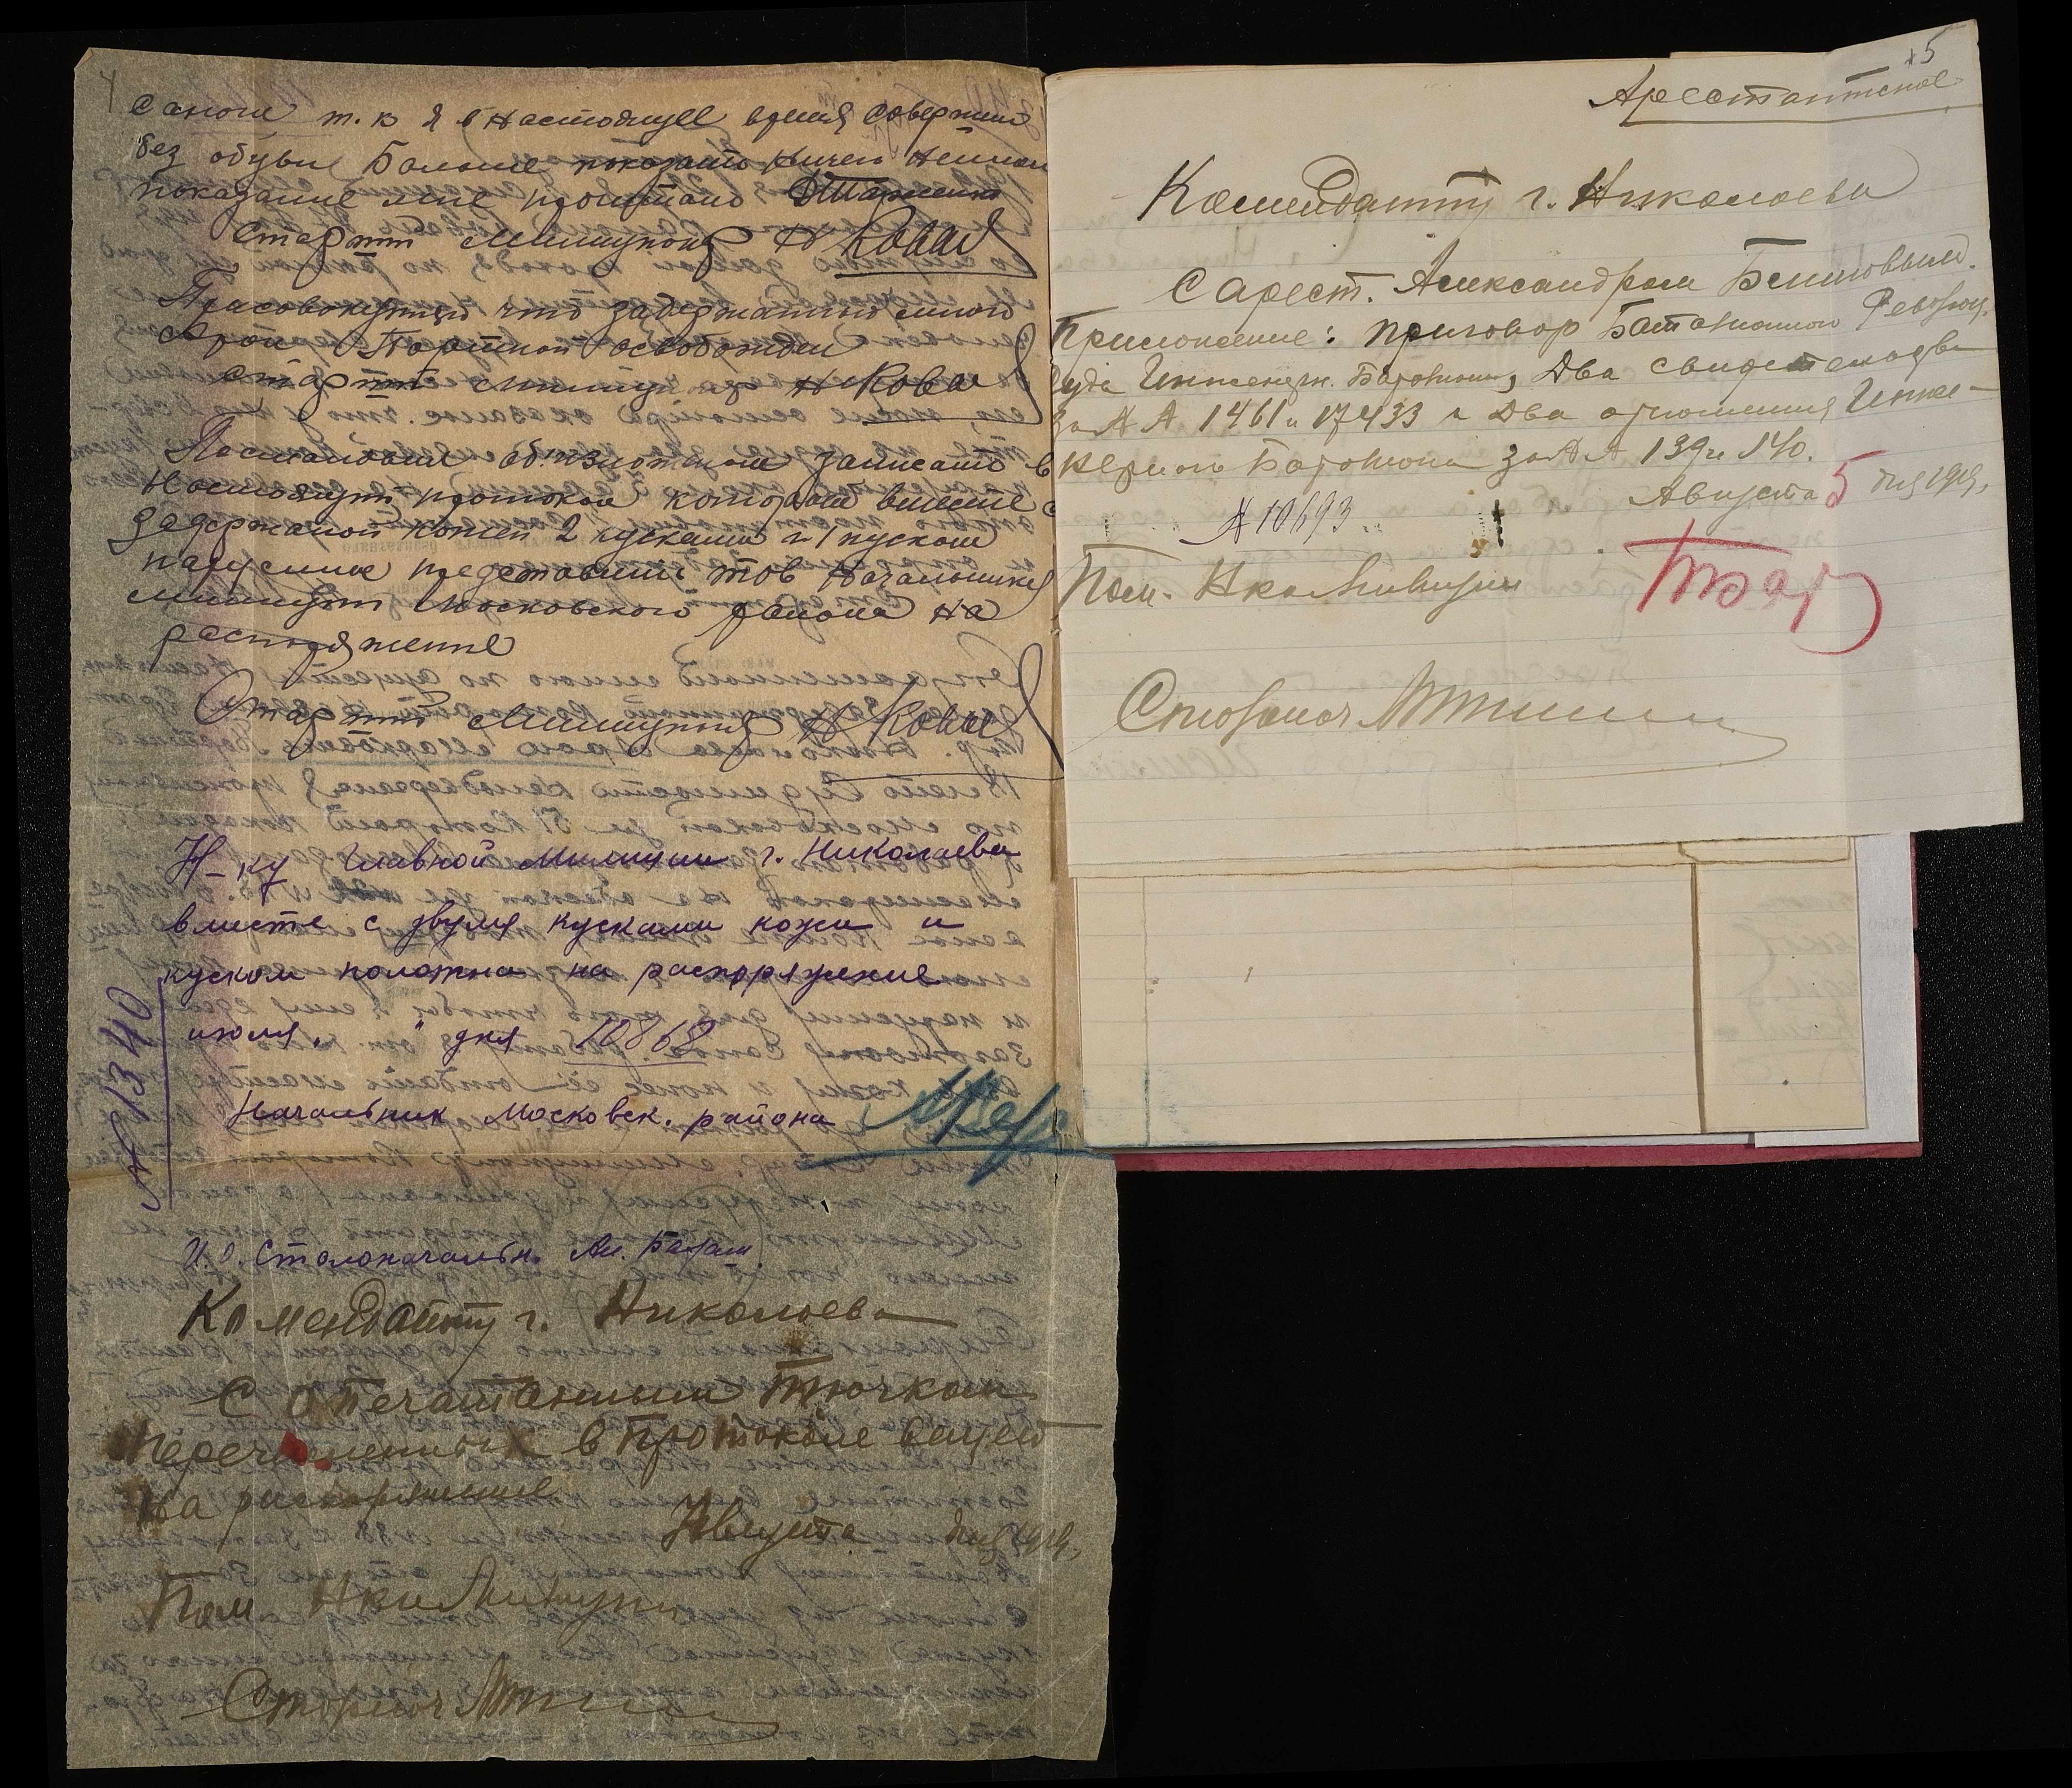 сапоги т.к я в настоящее время совершен
без обувы Больше показать ничего немогу
показание мне прочитано
Старший Милицион Н Ковал
Присовокупляю что задержанный мною
Портной освобожден
Старший милицион Н Ковал
Постановил об изложеном записать в
Настоящий протокол которой вместе с
задержаной кожей 2 кусками и 1 куском
парусине представить тов Начальнику
милиции Московского района на
распоряжение
Старший Милицион Н Ковал
Н-ку Главной Милиции г. Николаева
вместе с двумя кусками кожи и
куском полотна на распоряжение
июля „ " дня 10868
№ 1340
Начальник Московск. района
И.О. Столоначальн.
Коменданту г. Николаева
С опечатанным тючком
перечисленных в протоколе вещей
на распоряжение
Августа дня 1919г.
Пом Нка Милиции
Столонач
4
5
Арестантское
Коменданту г. Николаева
С арест. Александром
Приложение: приговор Баталионного Революц.
суда Инженерн. Батолиона, Два свидетельства
за № № 1461 и 17433 и Два отношения Инже-
нерного Батолиона за № № 139 и 140.
Августа 5 дня 1919г.
№ 10693
Пом. Нка Милиции
Столонач